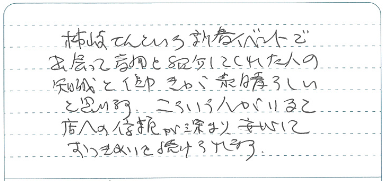 てんという新春イベントで
出会って商品を紹介してくれた人の
知識と働きが素晴らしい
と思います。こういう人がいると
店への信頼が深まり安心して
おつきあいを続けられます。